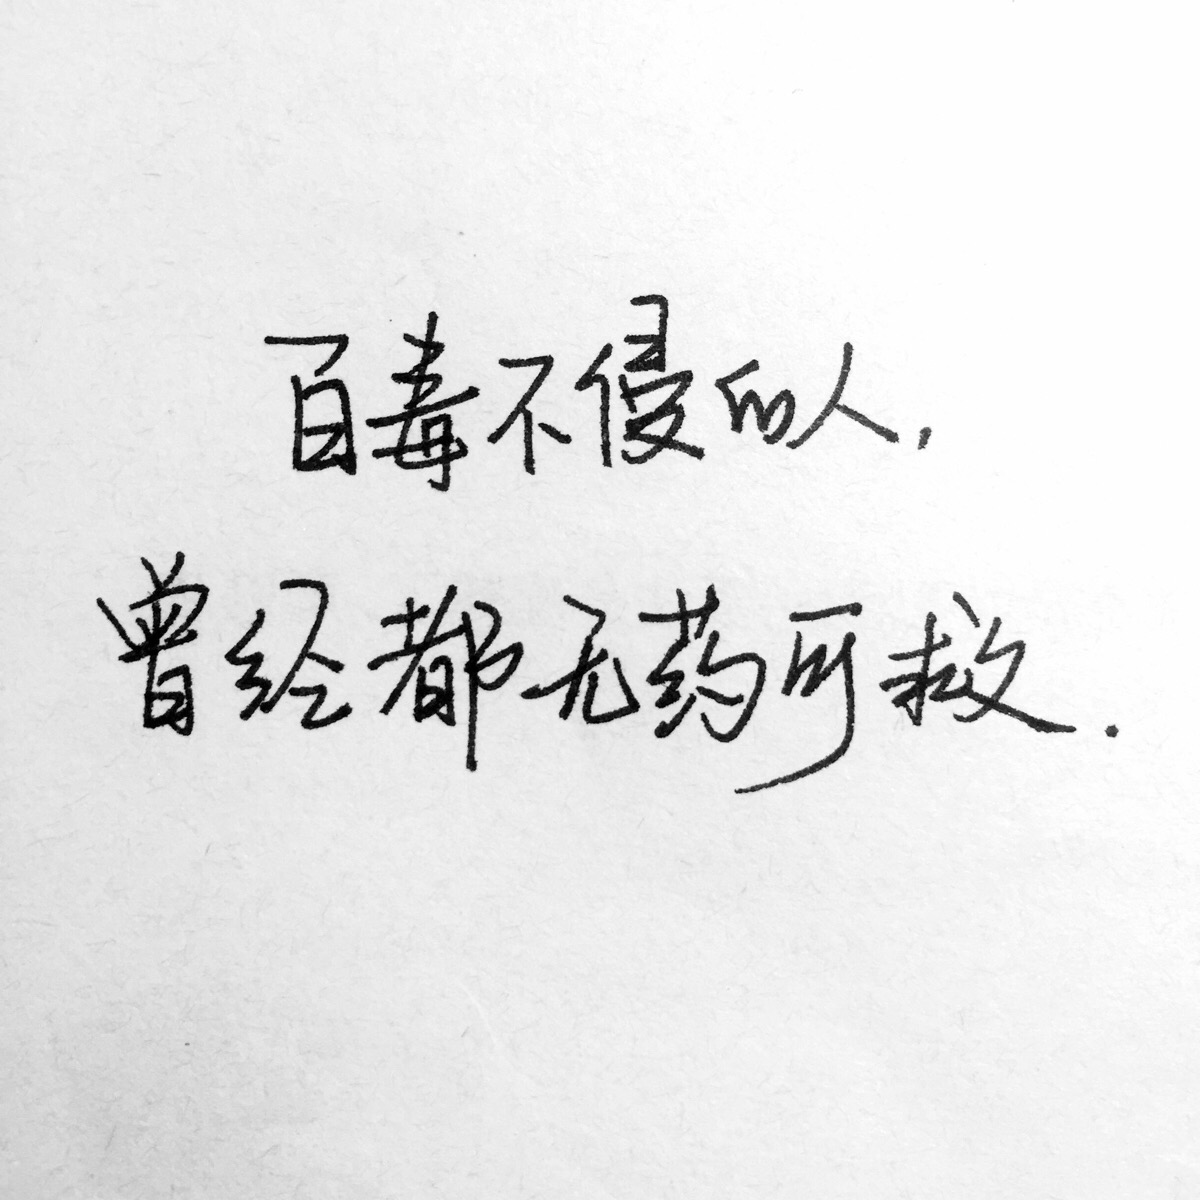 百毒不侵的人.
曾经都无药可救.